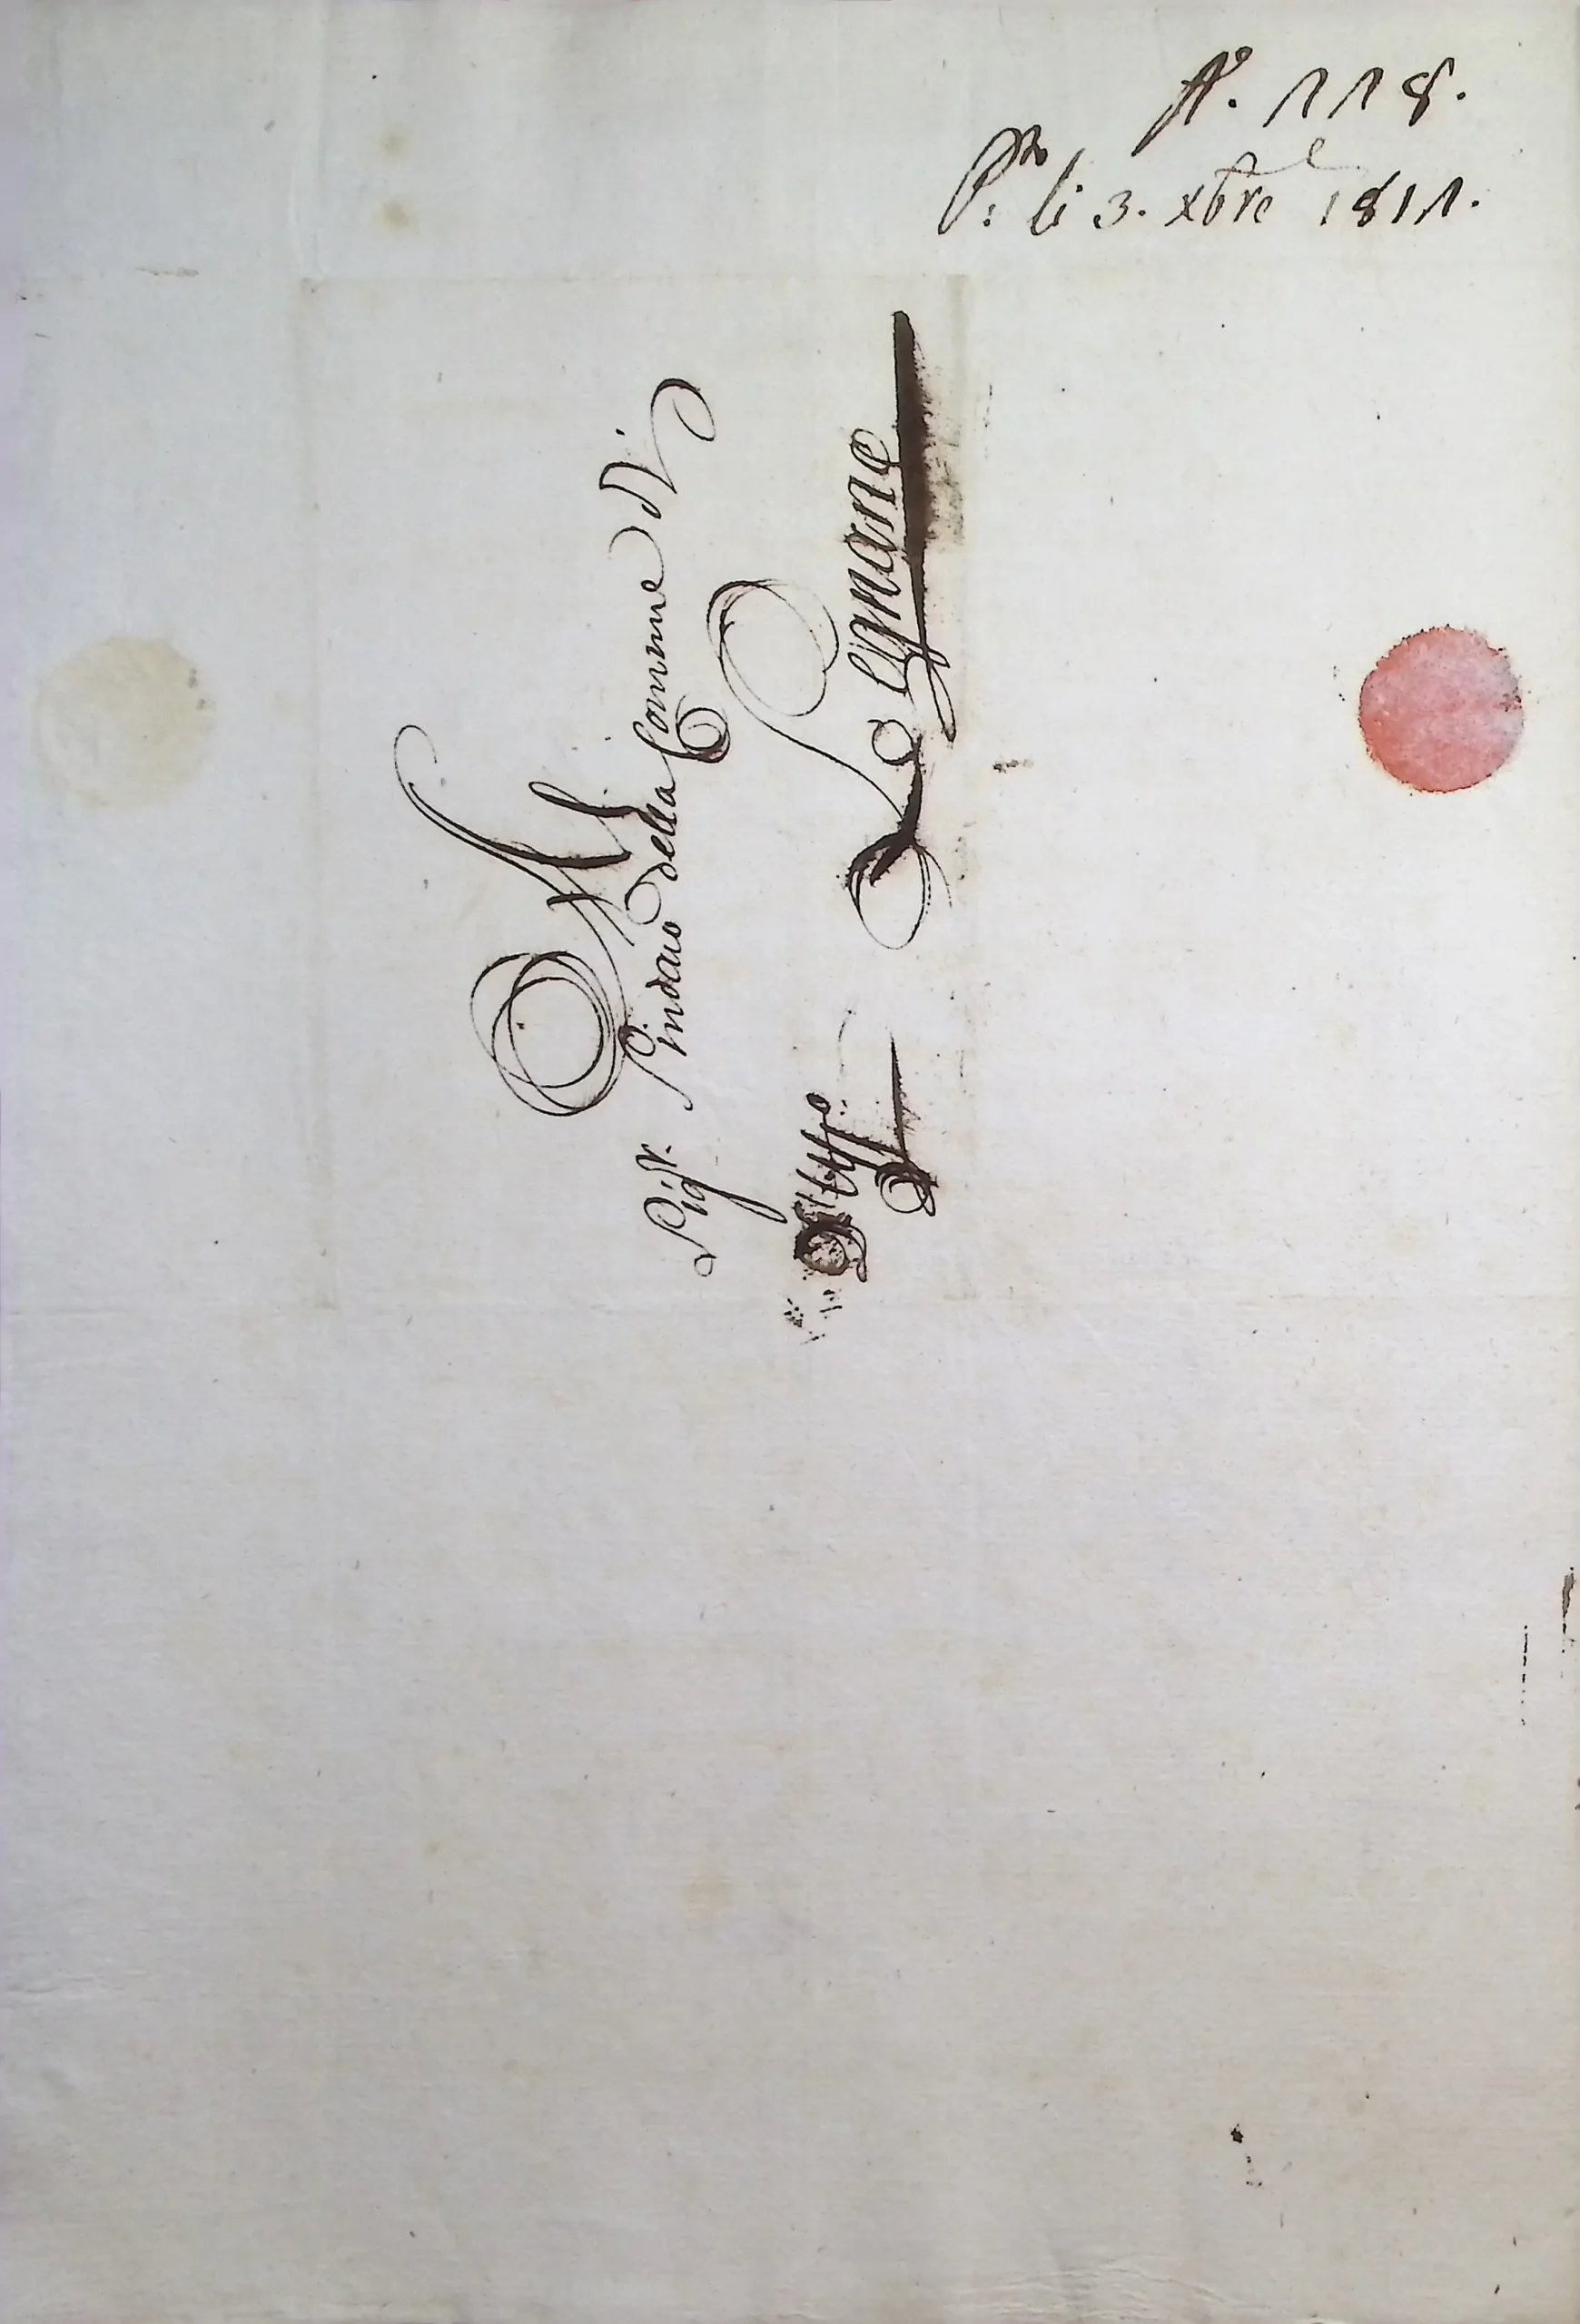 N.º 118.
P.ta li 3. Xbre 1811.
Al
Sig.r Sindaco della Comune di
Legnane